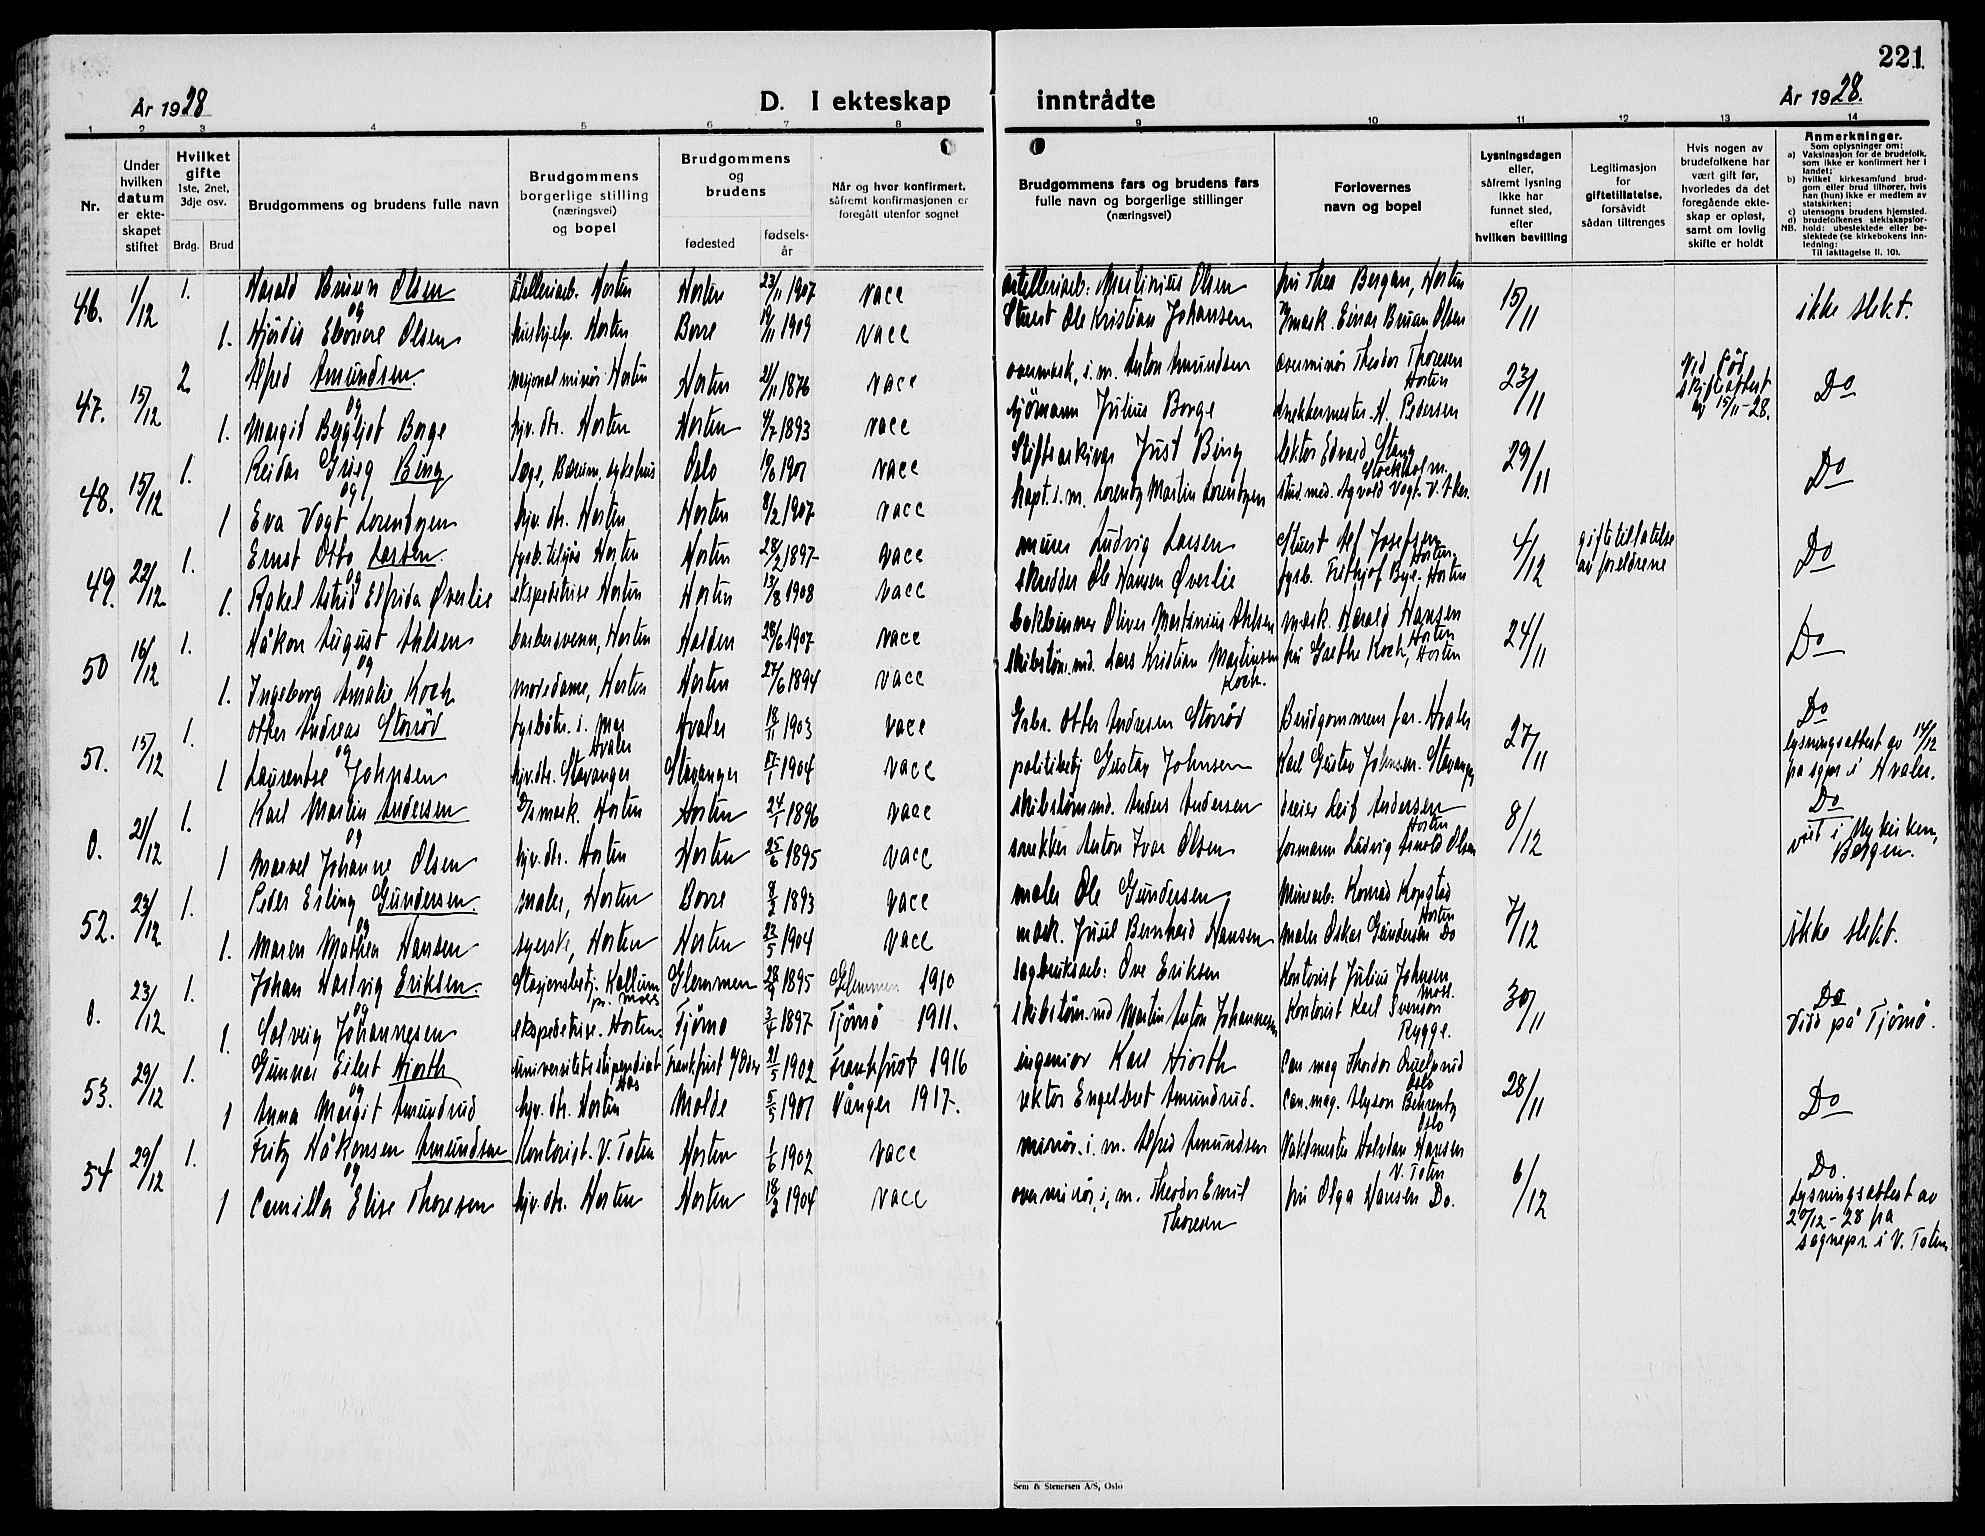 221
År 1928
D. I ekteskap inntrådte
År 1928.
1 2 3 4 5 6 7 8 9 10 11 12 13 14
Nr.
Under hvilken datum er ekte- skapet stiftet
Hvilket gifte 1ste, 2net, 3dje osv.
Brdg. Brud
Brudgommens og brudens fulle navn
Brudgommens borgerlige stilling (næringsvei) og bopel
Brudgommens og brudens
fødested
fødsels- år
Når og hvor konfirmert, såfremt konfirmasjonen er foregått utenfor sognet
Brudgommens fars og brudens fars fulle navn og borgerlige stillinger (næringsvei)
Forlovernes navn og bopel
Lysningsdagen eller, såfremt lysning ikke har funnet sted, efter hvilken bevilling
Legitimasjon for giftetillatelse, forsåvidt sådan tiltrenges
Hvis nogen av brudefolkene har vært gift før, hvorledes da det foregående ekte- skap er opløst, samt om lovlig skifte er holdt
Anmerkninger.
Som oplysninger om:
a) Vaksinasjon for de brudefolk, som ikke er konfirmert her i landet:
b) hvilket kirkesamfund brud- gom eller brud tilhører, hvis han (hun) ikke er medlem av statskirken:
c) utensogns brudens hjemsted.
d) brudefolkenes slektskapsfor-
NB. hold: ubeslektede eller be- slektede (se kirkebokens inn- ledning:
Til iakttagelse II. 10).
46. 1/12 1. Harald Bruun Olsen Horten Horten 23/11 1907 vacc artelleriarb: Martinius Olsen fru Thea Bergan, Horten 15/11 ikke slekt.
og
1. Hjördis Olsen Horten Borre 19/11 1909 vacc Stuert Ole Kristian Johansen Einar Bruun Olsen
47. 15/12 2 Alfred Amundsen. Horten Horten 21/11 1876 vacc i. m. Anton Amundsen overminör Theodor Thoresen Horten 23/11 Ved död skifteattest av 15/11-28. Do
og
1. Margit Bergljot Borge hjv. dtr. Horten Horten 4/7 1893 vacc sjömann Julius Borge snekkermester H. Pedersen
48. 15/12 1. Reidar Grieg Bing læge, Bærum, sykehus Oslo 19/6 1901 vacc Stiftsarkivar Just Bing lektor Edvard Stang Stockholm. 29/11 Do
og
1 Eva Vogt Lorentzen hjv. dtr. Horten Horten 8/2 1907 vacc kapt. i. m. Lorentz Martin Lorentzen stud. med. Vogt. V. Aker.
49. 22/12 1. Ernst Otto Larsen. Horten Horten 28/2 1897 vacc murer Ludvig Larsen Stuert Alf Josefsen Horten. 4/12 giftetillatelse av foreldrene Do
og
1. Rakel Astrid Elfrida Øverlie ekspeditrise Horten Horten 13/8 1908 vacc skredder Ole Hansen Øverlie fyrb. Frithjof Bye. Horten
50 16/12 1. Håkon August Ahlsen barbersvenn, Horten Halden 28/6 1907 vacc bokbinner Oliver Martinius Ahlsen mask. Harald Hansen Horten 24/11 Do
og
1. Ingeborg Amalie Koch motedame, Horten Horten 27/6 1894 vacc skibstöm.md. Lars Kristian Martinsen Koch. fru Koch, Horten
51. 15/12 1. Otter Andreas Storröd fyrböter. i. mar Hvaler Hvaler 18/11 1903 vacc Grbr. Otter Andresen Storröd Brudgommens far. Hvaler 27/11 Do
og
1 Laurentse Johnsen hjv. dtr. Stavanger Stavanger 17/1 1904 vacc politibetj Gustav Johnsen Karl Gustav Johnsen. Stavanger lysningsattest av 14/12 pa sgpr i Hvaler.
0. 21/12 1. Karl Martin Andersen mask. Horten Horten 24/1 1896 vacc skibstöm.md. Anders Andersen dreier Leif Andersen Horten 8/12 Do
og
1 Johanne Olsen hjv. dtr. Horten Horten 25/6 1895 vacc snekker Anton Ivar Olsen formann Ludvig Arnold Olsen viet i Nykirken, Bergen.
52. 23/12 1. Peder Erling Gundersen. maler, Horten Borre 8/2 1893 vacc maler Ole Gundersen Minearb: Konrad Kopstad Horten 7/12 ikke slekt.
og
1. Maren Mathea Hansen syersk, Horten Horten 22/5 1904 vacc mask. Juul Bernhard Hansen maler Oskar Gundersen Do
0. 23/12 1. Johan Hartvig Eriksen. Stasjonsbetj. pr. Moss Glemmen 1895 Glemmen 1910 sagbruksarb: Ove Eriksen Kontorist Julius Johnsen Moss. 30/11 Do
og
1. Solveig Johannesen ekspeditrise. Horten. Tjömö 3/4 1897 Tjömö 1911. skibstöm.md Martin Anton Johannesen Kontorist Karl Svenson Rygge. Vied på Tjömö.
53. 29/12 1. Gunnar Eilert Hjorth universitetsstipendiat Aas Frankfurt 21/5 1902 Frankfurt 1916 ingeniør Karl Hjorth Can mag Thordor Oslo 28/11 Do
og
1 Anna Margit Amundrud hjv. dtr. Horten Molde 5/5 1901 Vånger 1917. rektor Engelbret Amundrud. Can. mag. Behrentz Oslo
54 29/12 1. Fritz Håkonsen Amundsen Kontorist. V. Toten Horten 1/6 1902 vacc minör. i. m. Alfred Amundsen Vaktmester Halvdan Hansen V. Toten 6/12 Do.
og
1 Camilla Elise Thoresen hjv. dtr. Horten Horten 18/2 1904 vacc overminör, i, m. Theodor Emil Thoresen fru Olga Hansen Do. Lysningsattest av 20/12-28 fra sognepr. i V. Toten
Sem & Stenersen A/S, Oslo